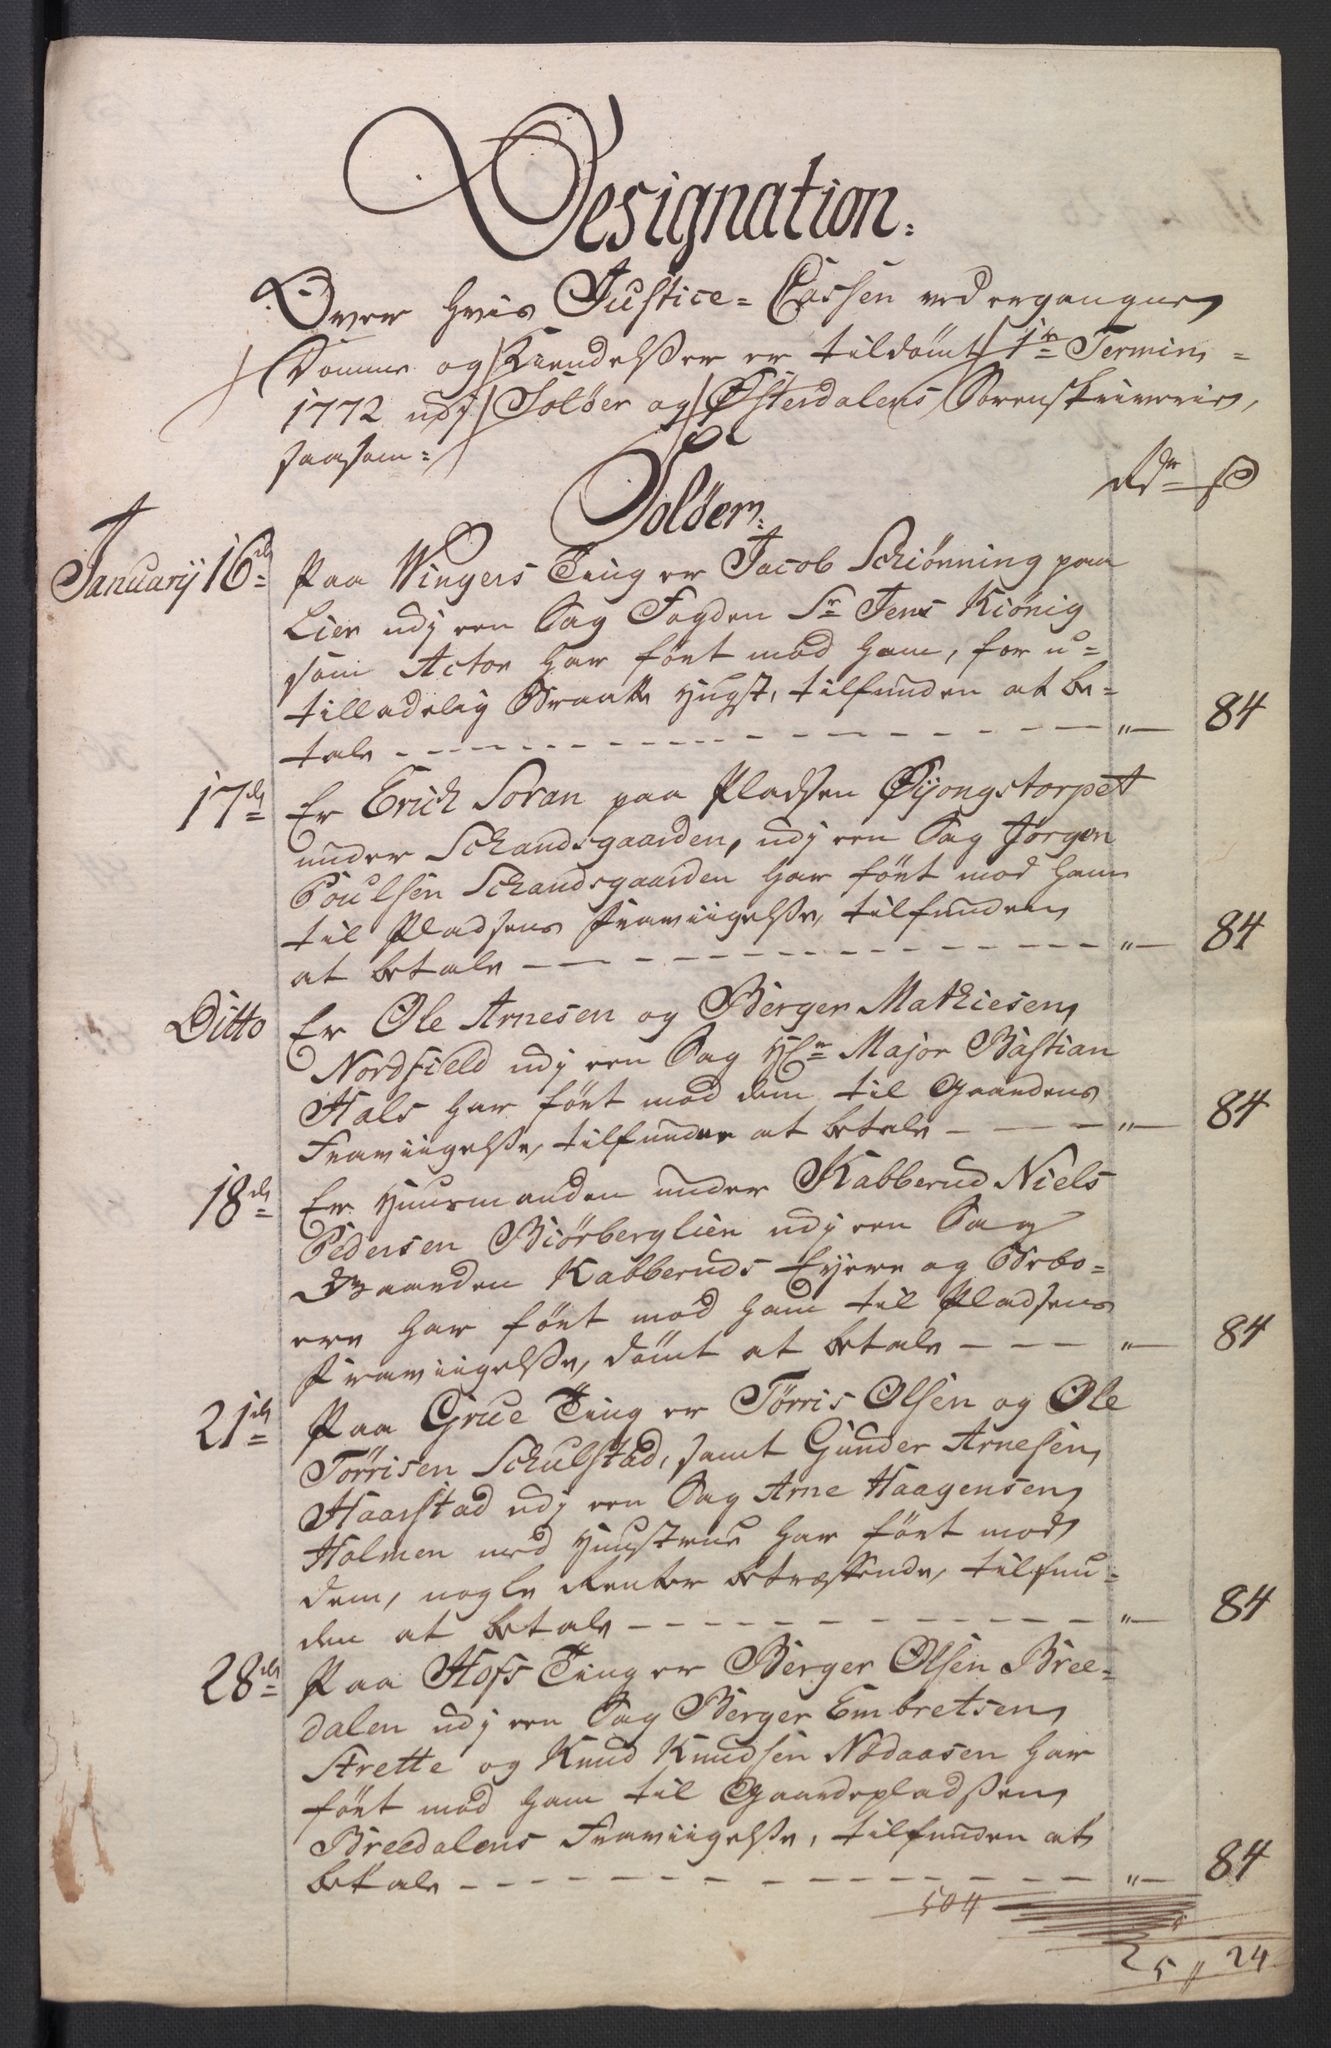 Designation.
Over hvis Justice-Cassen ved ergangne
Domme og Kiendelsser er tildømt 1te Termin
1772 udj Soløer og Østerdalens Sorenskriverie,
saasom:
Soløer.
Rdr ß
Januarij 16de Paa Wingers Ting er Jacob Schiønning paa
Lier udj een Sag Fogden Sr Jens Kiönig
som Actor har ført mod ham, for u-
tilladelig Braatte Hugst, tilfunden at be-
tale - - - " 84
17de Er Erich Soran paa Pladsen Øijongstorpet
under Schandsgaarden, udj een Sag Jørgen
Poulsen Schandsgaarden har ført mod ham
til Pladsens Fraviigelsse, tilfunden
at betale - - - " 84
Ditto Er Ole Arnesen og Berger Mathiesen
Nordfield udj een Sag Hr Major Bastian
Hals har ført mod dem til Gaardens
Fraviigelsse, tilfunden at betale - - - " 84
18de Er Huusmanden under Kabberud Niels
Pedersen Biörberglien udj een Sag
Gaarden Kabberuds Eyere og Bebo-
ere har ført mod ham til Pladsens
Fraviigelsse, dømt at betale - - - " 84
21de Paa Grue Ting er Tørris Olsen og Ole
Tørrisen Schulstad, samt Gunder Arnesen
Haarstad udj een Sag Arne Haagensen
Holmen med Huustrue har ført mod
dem, nogle Renter betræffende, tilfun-
den at betale - - - " 84
28de Paa Hofs Ting er Berger Olsen Bree-
dalen udj een Sag Berger Embretsen
Strette og Knud Knudsen Nodaasen har
ført mod ham til Gaardepladsen
Breedalens Fraviigelsse, tilfunden at
betale - - - " 84
504
5 " 24